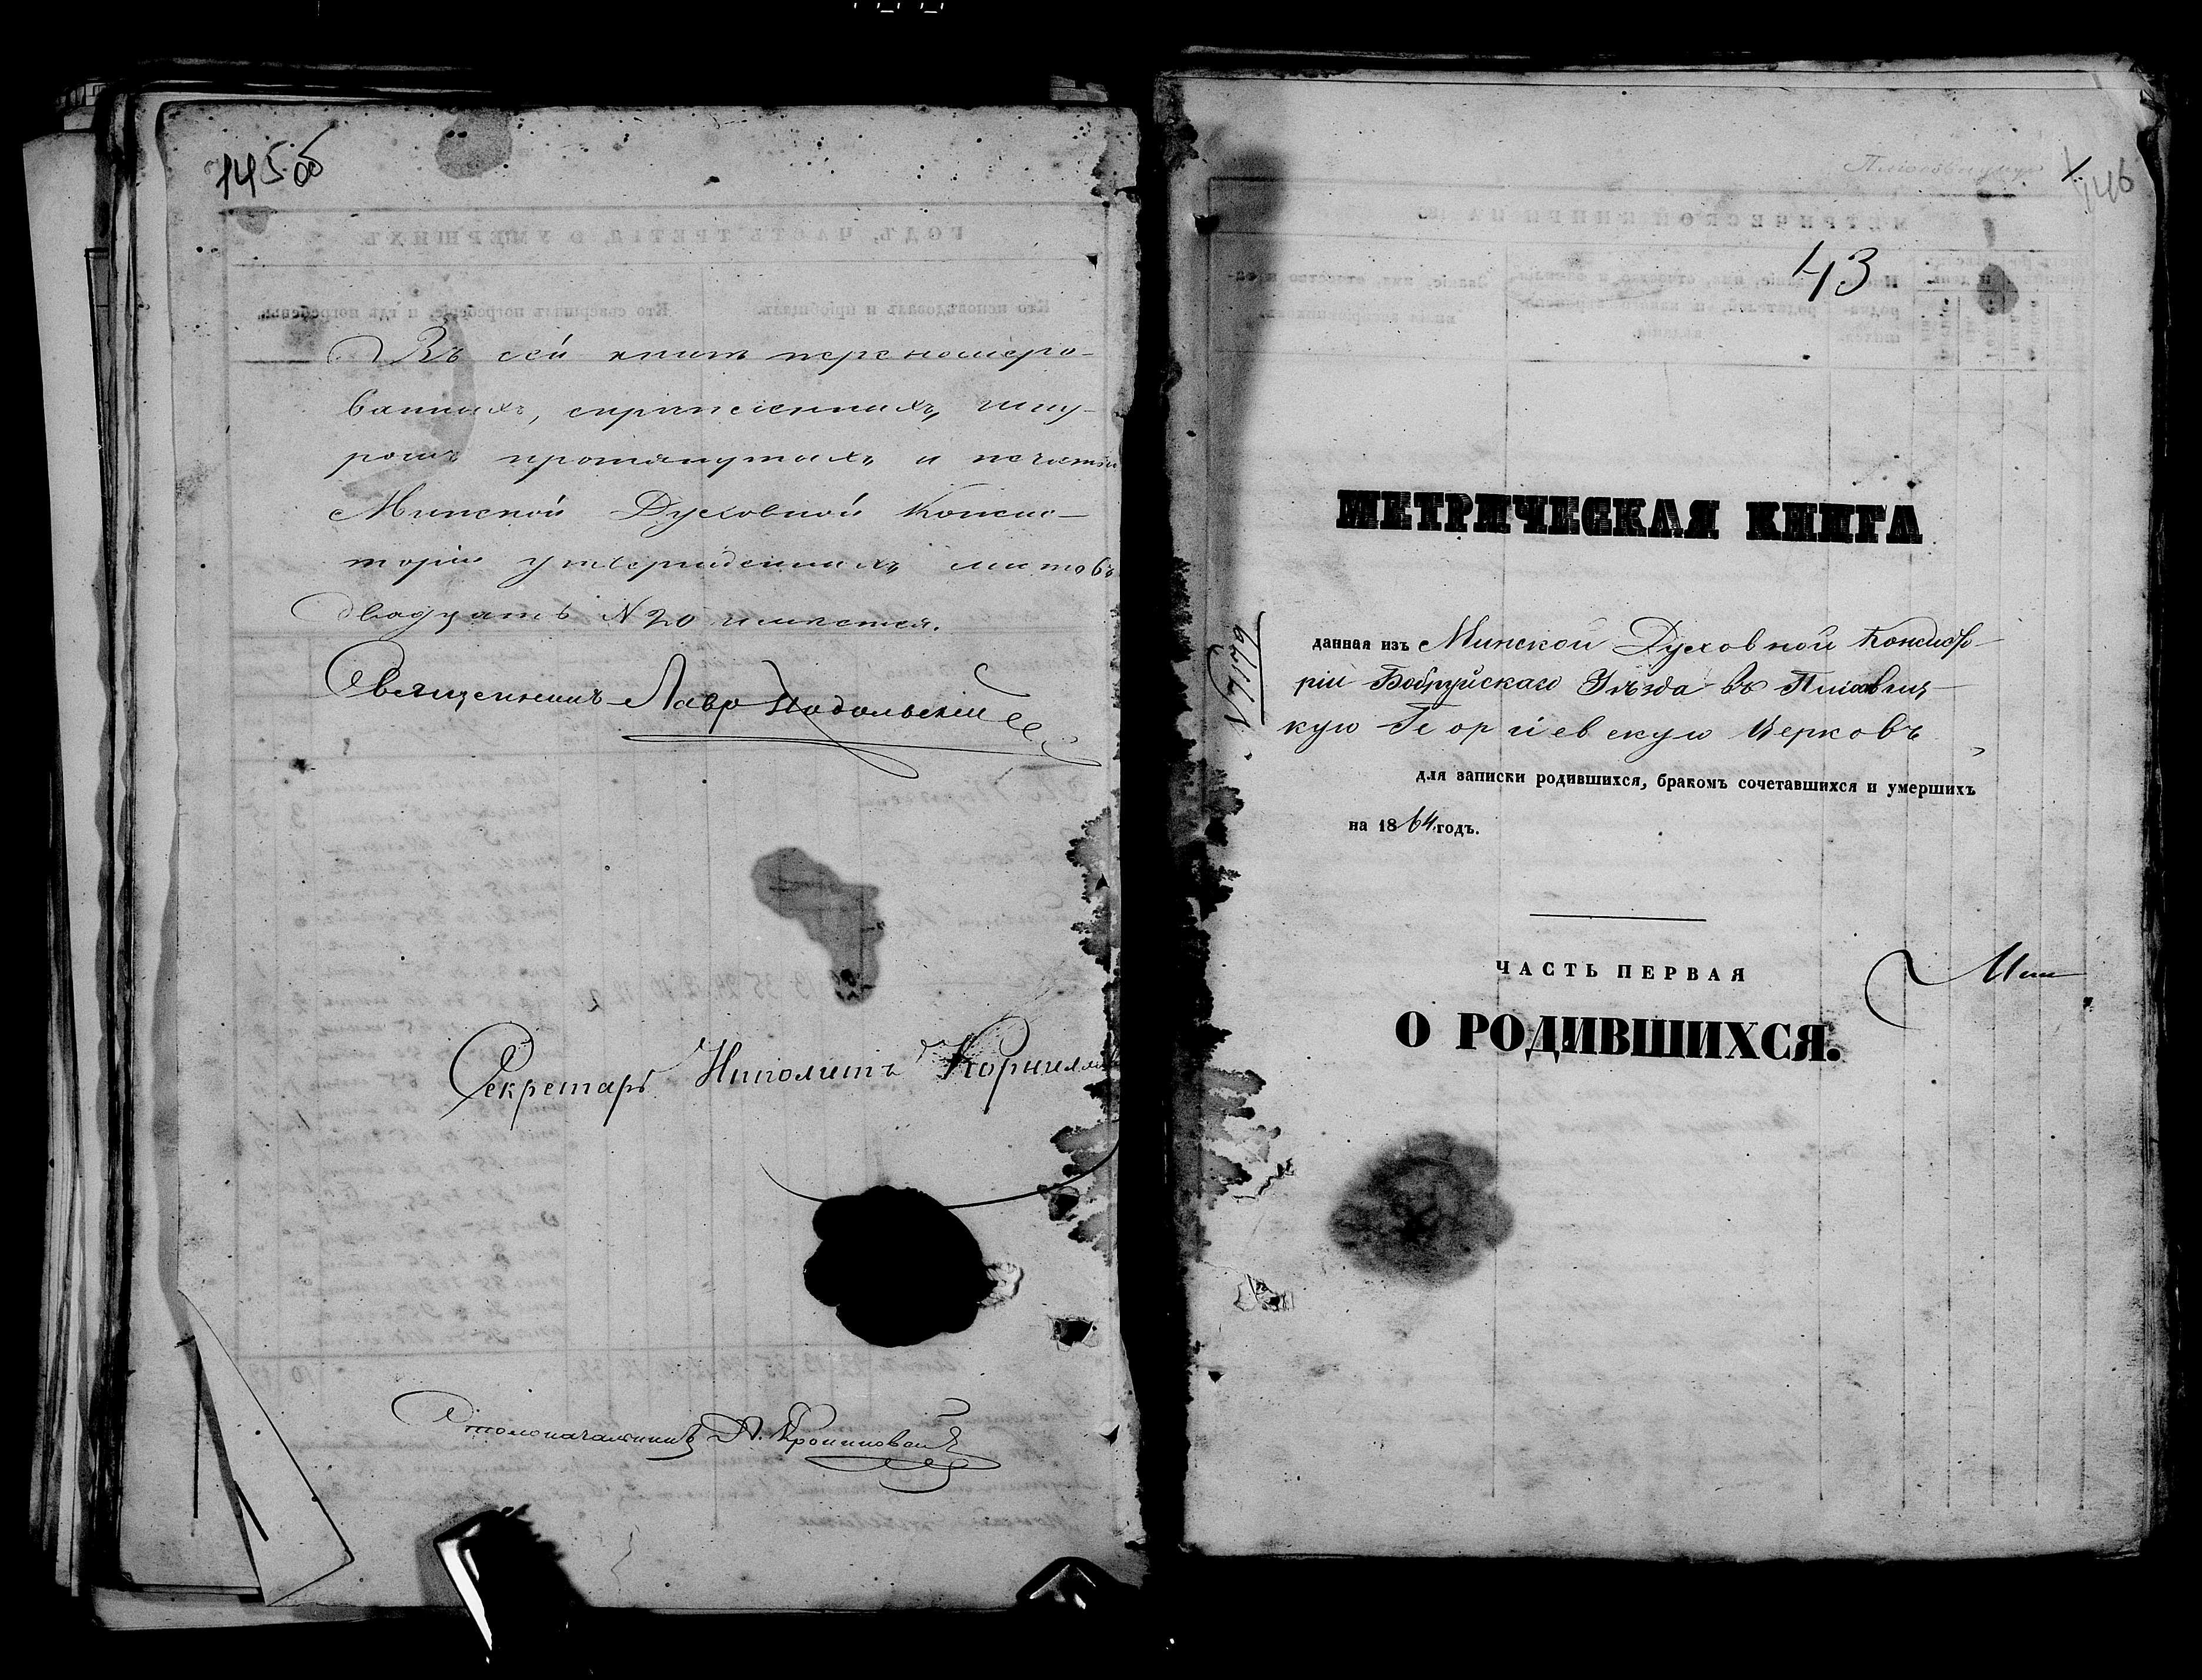 145 об
Въ сей книгѣ перенумеро-
ванныхъ, скрѣпленныхъ, шну-
ромъ протянутыхъ и печатью
Минской Духовной Консис-
торіи утвержденныхъ листовъ
двадцать № 20 имѣется.
Священникъ Лавр Подольскій
Секретарь Ипполитъ
Столоначальникъ
146
43
МЕТРИЧЕСКАЯ КНИГА
№ 7179
данная изъ Минской Духовной Консисто-
ріи Бобруйскаго Уѣзда въ
кую Георгіевскую Церковь
для записки родившихся, бракомъ сочетавшихся и умершихъ
на 1864 годъ.
ЧАСТЬ ПЕРВАЯ
О РОДИВШИХСЯ.